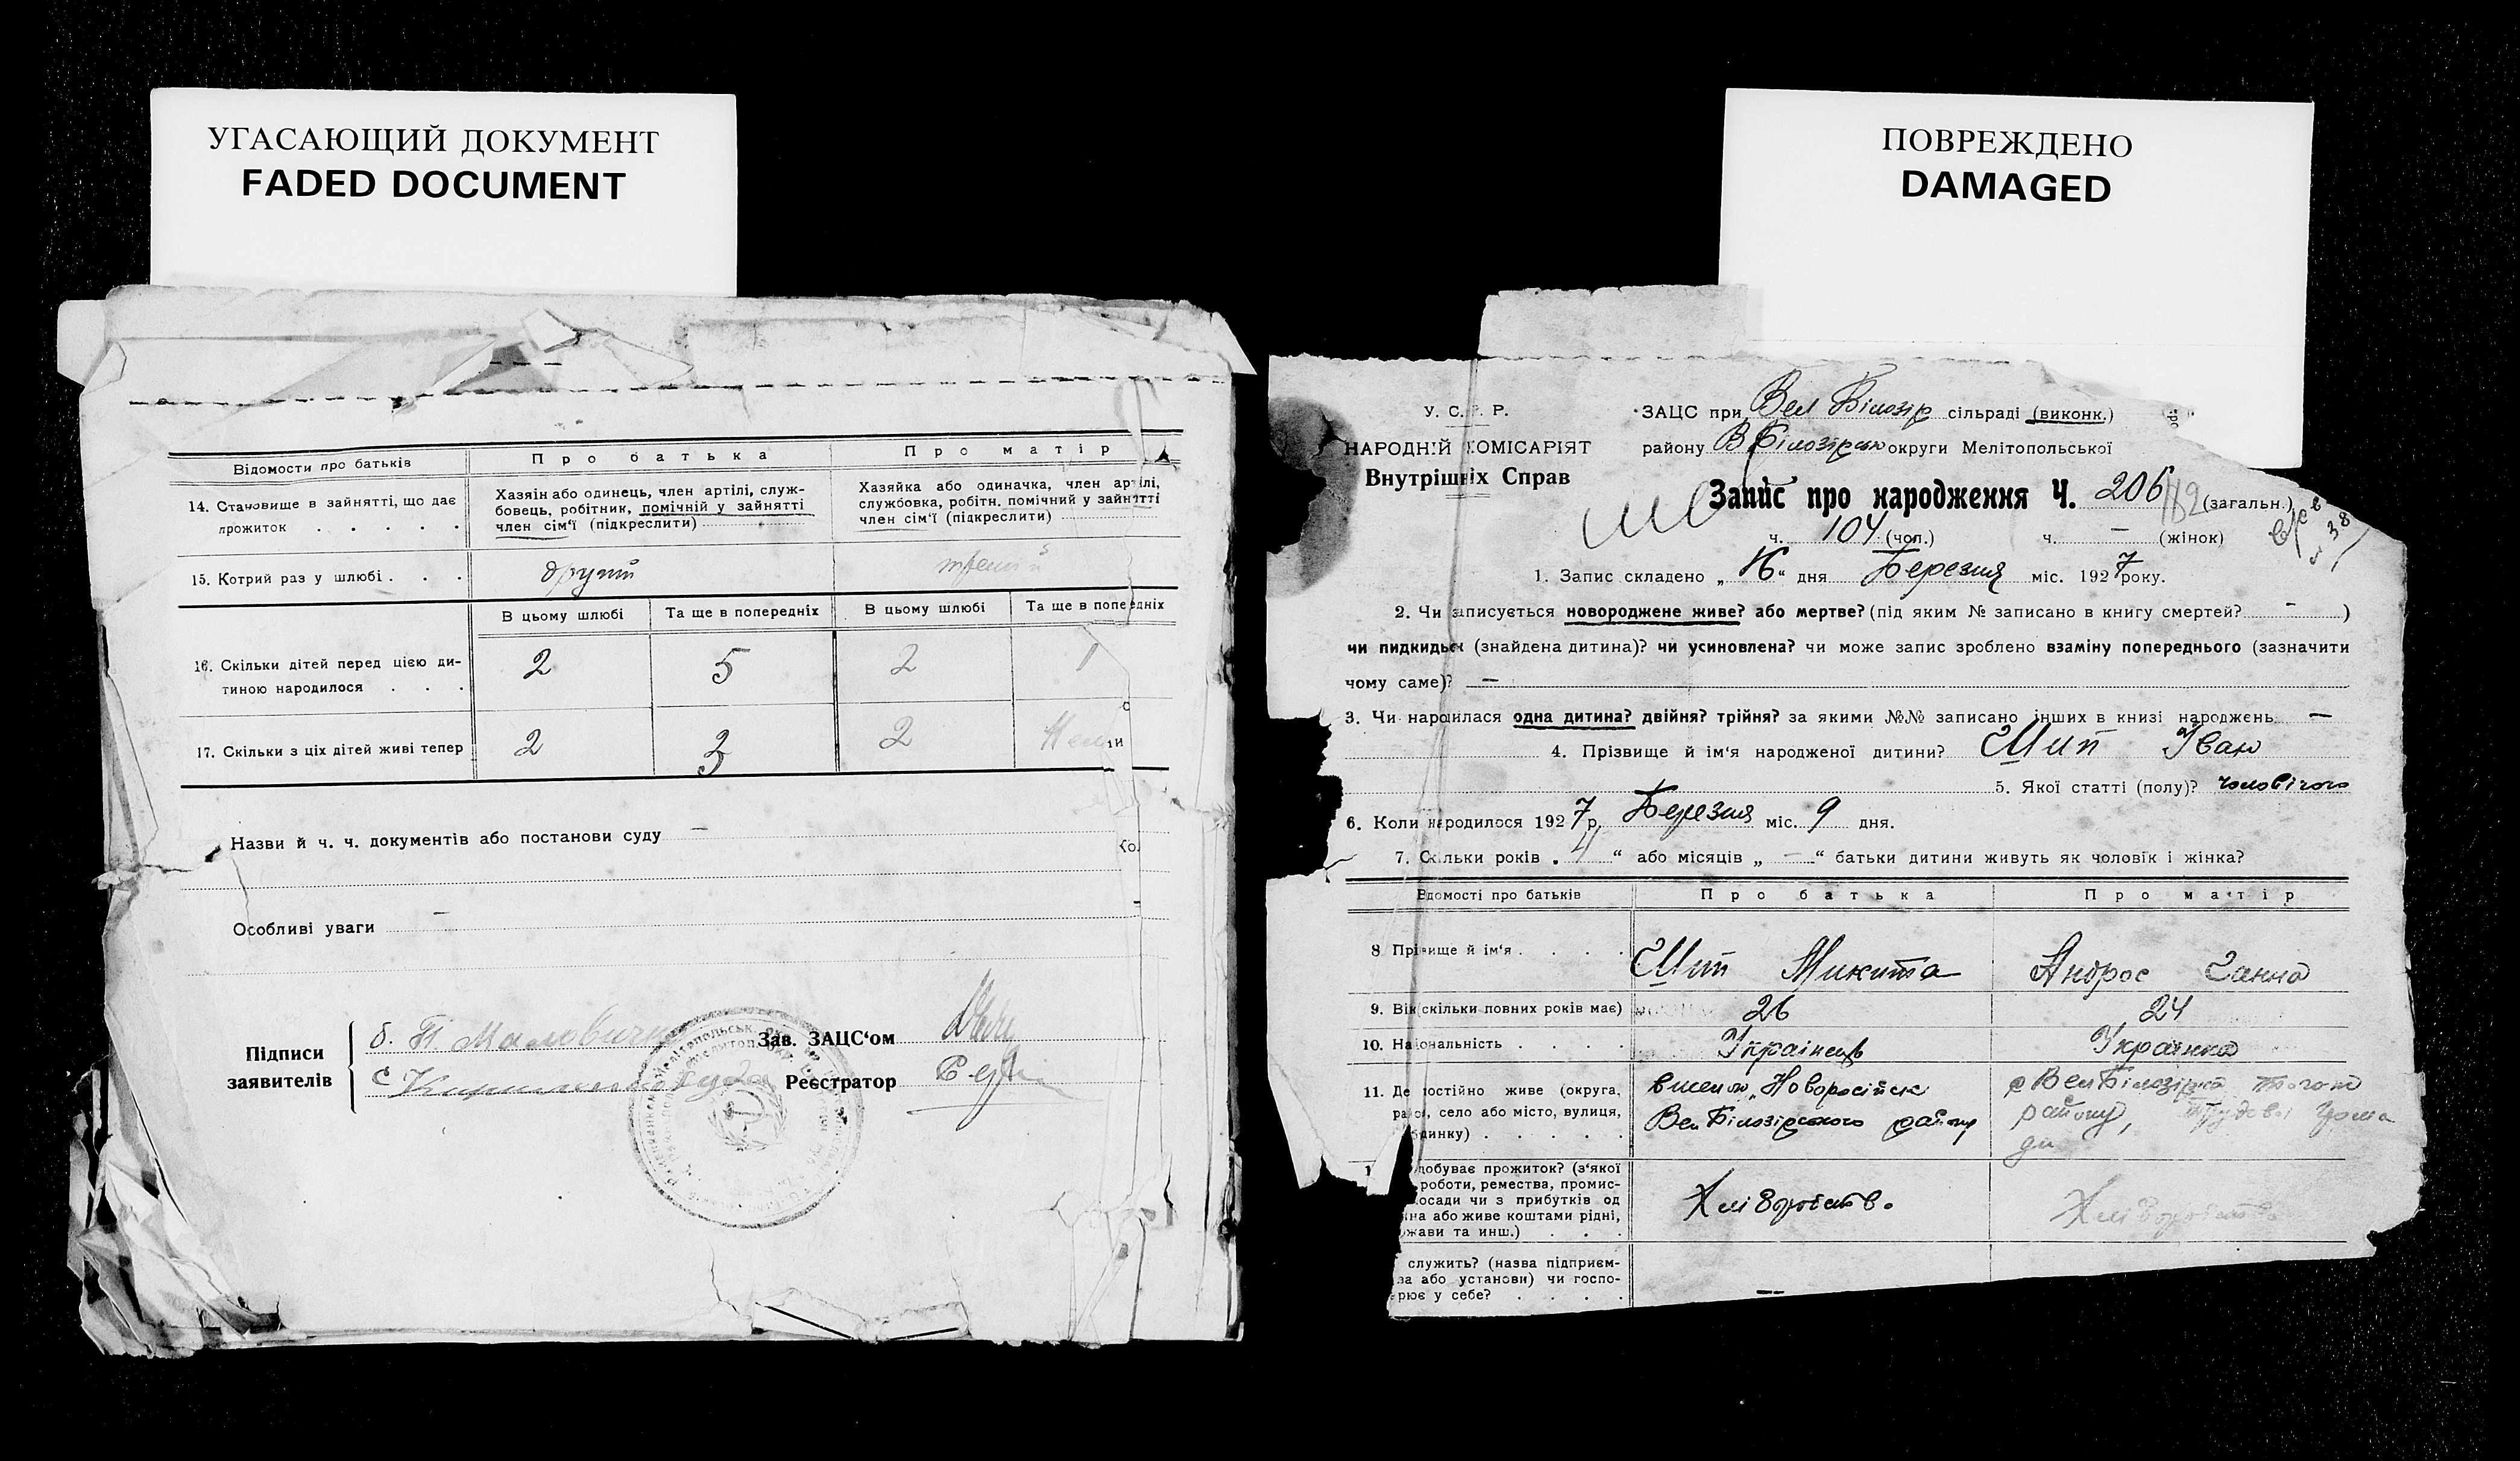 УГАСАЮЩИЙ ДОКУМЕНТ
FADED DOCUMENT
Відомости про батьків
Про батька
Про матір
14. Становище в зайнятті, що дає прожиток . . . . .
Хазяін або одинець, член артілі, служ-
бовець, робітник, помічній у зайнятті
член сім'ї (підкреслити)
Хазяйка або одиначка, член артілі,
службовка, робітн. помічний у зайнятті
член сім'ї (підкреслити)
15. Котрий раз у шлюбі . . .
другий
третій
В цьому шлюбі
Та ще в попередніх
В цьому шлюбі
Та ще в попередніх
16. Скільки дітей перед цією ди-
тиною народилося . . .
2
5
2
1
17. Скільки з ціх дітей живі тепер
2
3
2
Назви й ч. ч. документів або постанови суду —
Особливі уваги —
Підписи
заявителів
б.
Зав. ЗАЦС'ом
Реєстратор
ПОВРЕЖДЕНО
DAMAGED
У. С. Р. Р.
НАРОДНІЙ КОМІСАРІЯТ
Внутрішніх Справ
ЗАЦС при Вел Білозір сільраді (виконк.)
району В Білозірськ округи Мелітопольської
Запис про народження Ч. 206 (загальн.)
ч. 104 (чол.) ч. — (жінок)
1. Запис складено „ 16 “ дня Березня міс. 1927 року.
2. Чи записується новороджене живе? або мертве? (під яким № записано в книгу смертей? - )
чи пидкидьок (знайдена дитина)? чи усиновлена? чи може запис зроблено взаміну попереднього (зазначити
чому саме)? —
3. Чи народилася одна дитина? двійня? трійня? за якими №№ записано інших в книзі народжень —
4. Прізвище й ім'я народженої дитини? Шип Іван
5. Якої статті (полу)? чоловічого
6. Коли народилося 1927 р. Березня міс. 9 дня.
7. Скільки років „ 4 “ або місяців „ — “ батьки дитини живуть як чоловік і жінка?
Відомості про батьків
Про батька
Про матір
8 Прізвище й ім'я . . . .
Шип Микита
Андрос Ганна
9. Вік (скільки повних років має)
26
24
10. Національність . . . .
Українець
Українка
11. Де постійно живе (округа,
район, село або місто, вулиця,
будинку) . . . . .
Новоросійськ
Вел Білозірського району
с Вел Білозірка того ж
району, Трудової грома
ди
добуває прожиток? (з'якої
роботи, ремества, промис-
посади чи з прибутків од
або живе коштами рідні,
жави та инш.) . . .
Хліборобств.
Хліборобств
служить? (назва підприєм-
ва або установи) чи госпо-
рює у себе? . . . .
—